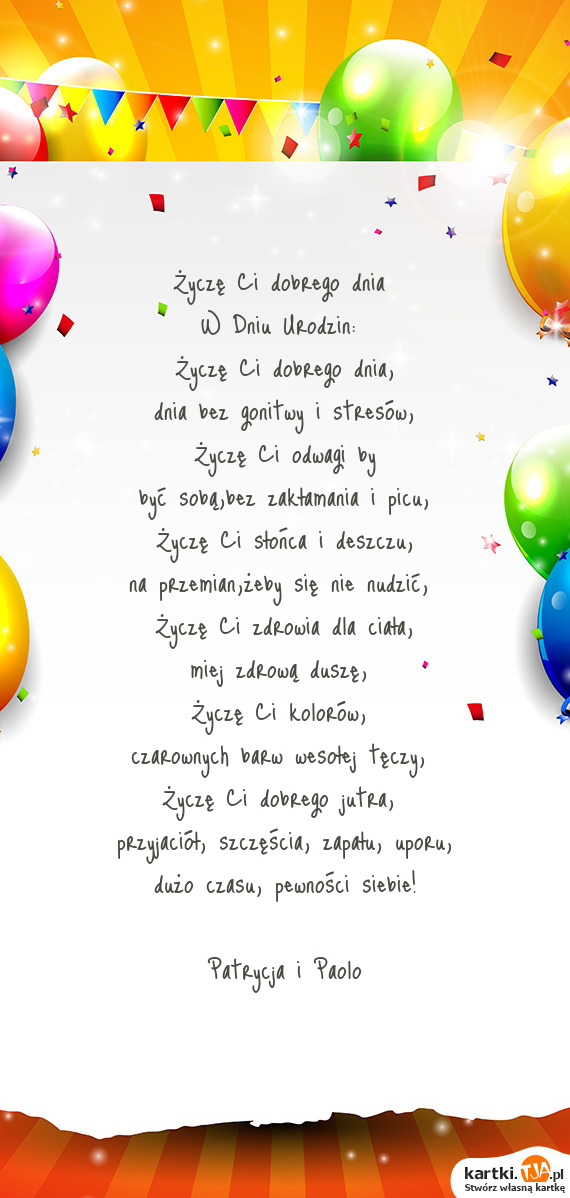 Życzę Ci dobrego dnia
W Dniu Urodzin:
Życzę Ci dobrego dnia,
dnia bez gonitwy i stresów,
Życzę Ci odwagi by
być sobą,bez zakłamania i picu,
Życzę Ci słońca i deszczu,
na przemian,żeby się nie nudzić,
Życzę Ci zdrowia dla ciała,
miej zdrową duszę,
Życzę Ci kolorów,
czarownych barw wesołej tęczy,
Życzę Ci dobrego jutra,
przyjaciół, szczęścia, zapału, uporu,
dużo czasu, pewności siebie!
Patrycja i Paolo
kartki.TJA.pl
Stwórz własną kartkę